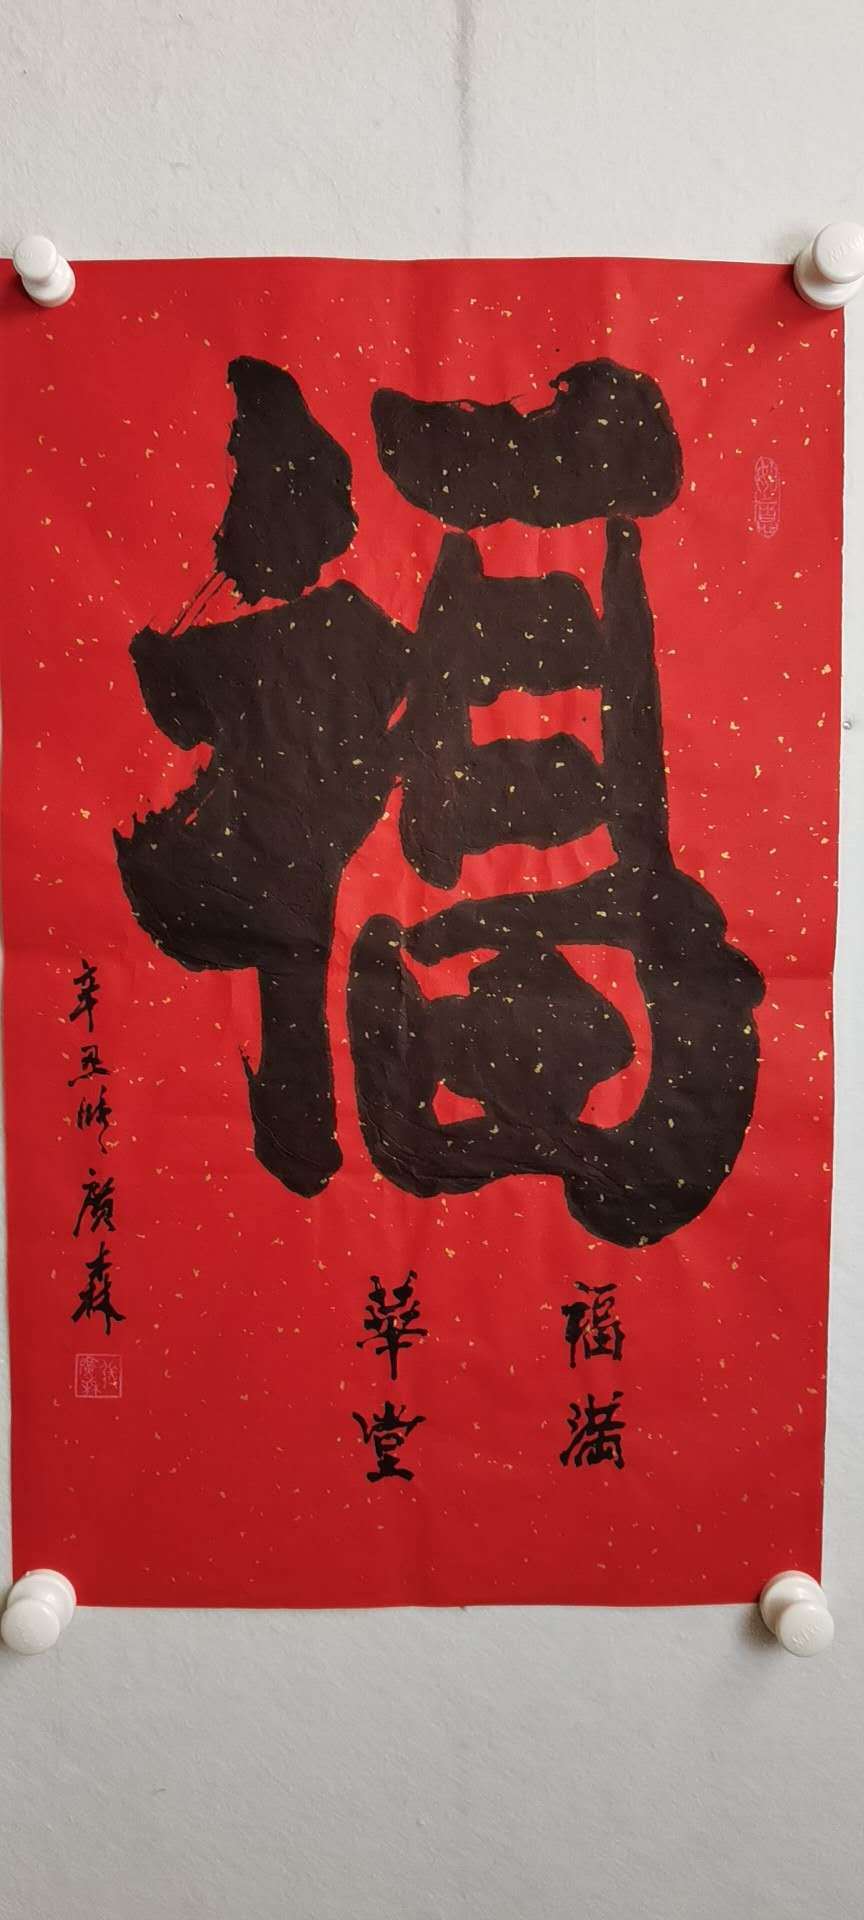 福
福满
華堂
辛丑 廣森